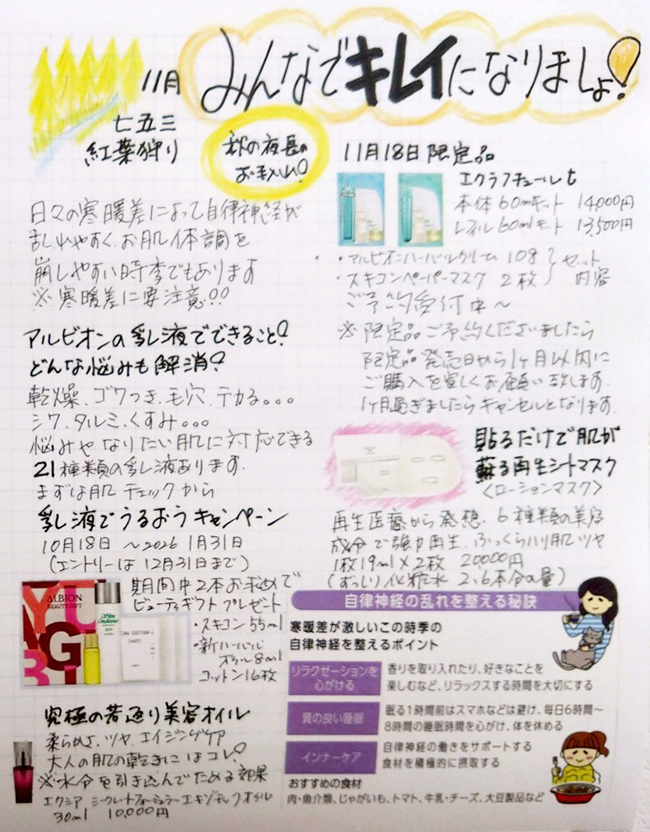 11月
みんなでキレイになりましょ!
七五三
紅葉狩り
秋の夜長の
お手入れ!
日々の寒暖差によって自律神経が
乱れやすく、お肌体調を
崩しやすい時季でもあります
※寒暖差に要注意!!
アルビオンの乳液でできること!
どんな悩みも解消!
乾燥、ゴワつき、毛穴、テカる。。。
シワ、タルミ、くすみ...
悩みやなりたい肌に対応できる
21種類の乳液あります。
まずは肌チェックから
乳液でうるおうキャンペーン
10月18日〜2026 1月31日
(エントリーは12月31日まで)
期間中2本お求めで
ビューティギフトプレゼント
・スキコン55ml
・新ハーバル
オイル8ml
コットン16枚
ALBION
BEAUTY GIFT
究極の若返り美容オイル
柔らかさ、ツヤ、エイジングケア
大人の肌の乾きにはコレ!
※水分を引き込んでためる効果
エクシア シークレットフォーミュラー エキゾティックオイル
30ml 10,000円
11月18日限定品
エクラフチュール t
本体 60mlキット 14,000円
レフィル 60mlキット 13,500円
・アルビオンハーバルクリーム 10g
・スキコンペーパーマスク 2枚
セット
内容
ご予約受付中〜
※限定品ご予約くださいましたら
限定品発売日から1ヶ月以内に
ご購入を宜しくお願い致します。
1ヶ月過ぎましたらキャンセルとなります。
貼るだけで肌が
蘇る再生シートマスク
〈ローションマスク〉
再生医療から発想、6種類の美容
成分で強力再生、ふっくらハリ肌ツヤ
1枚19ml×2枚 20000円
(ずっしり化粧水 2.6本分の量)
自律神経の乱れを整える秘訣
寒暖差が激しいこの時季の
自律神経を整えるポイント
リラクゼーションを
心がける
香りを取り入れたり、好きなことを
楽しむなど、リラックスする時間を大切にする
質の良い睡眠
眠る1時間前はスマホなどは避け、毎日6時間〜
8時間の睡眠時間を心がけ、体を休める
インナーケア
自律神経の働きをサポートする
食材を積極的に摂取する
おすすめの食材
肉・魚介類、じゃがいも、トマト、牛乳・チーズ、大豆製品など